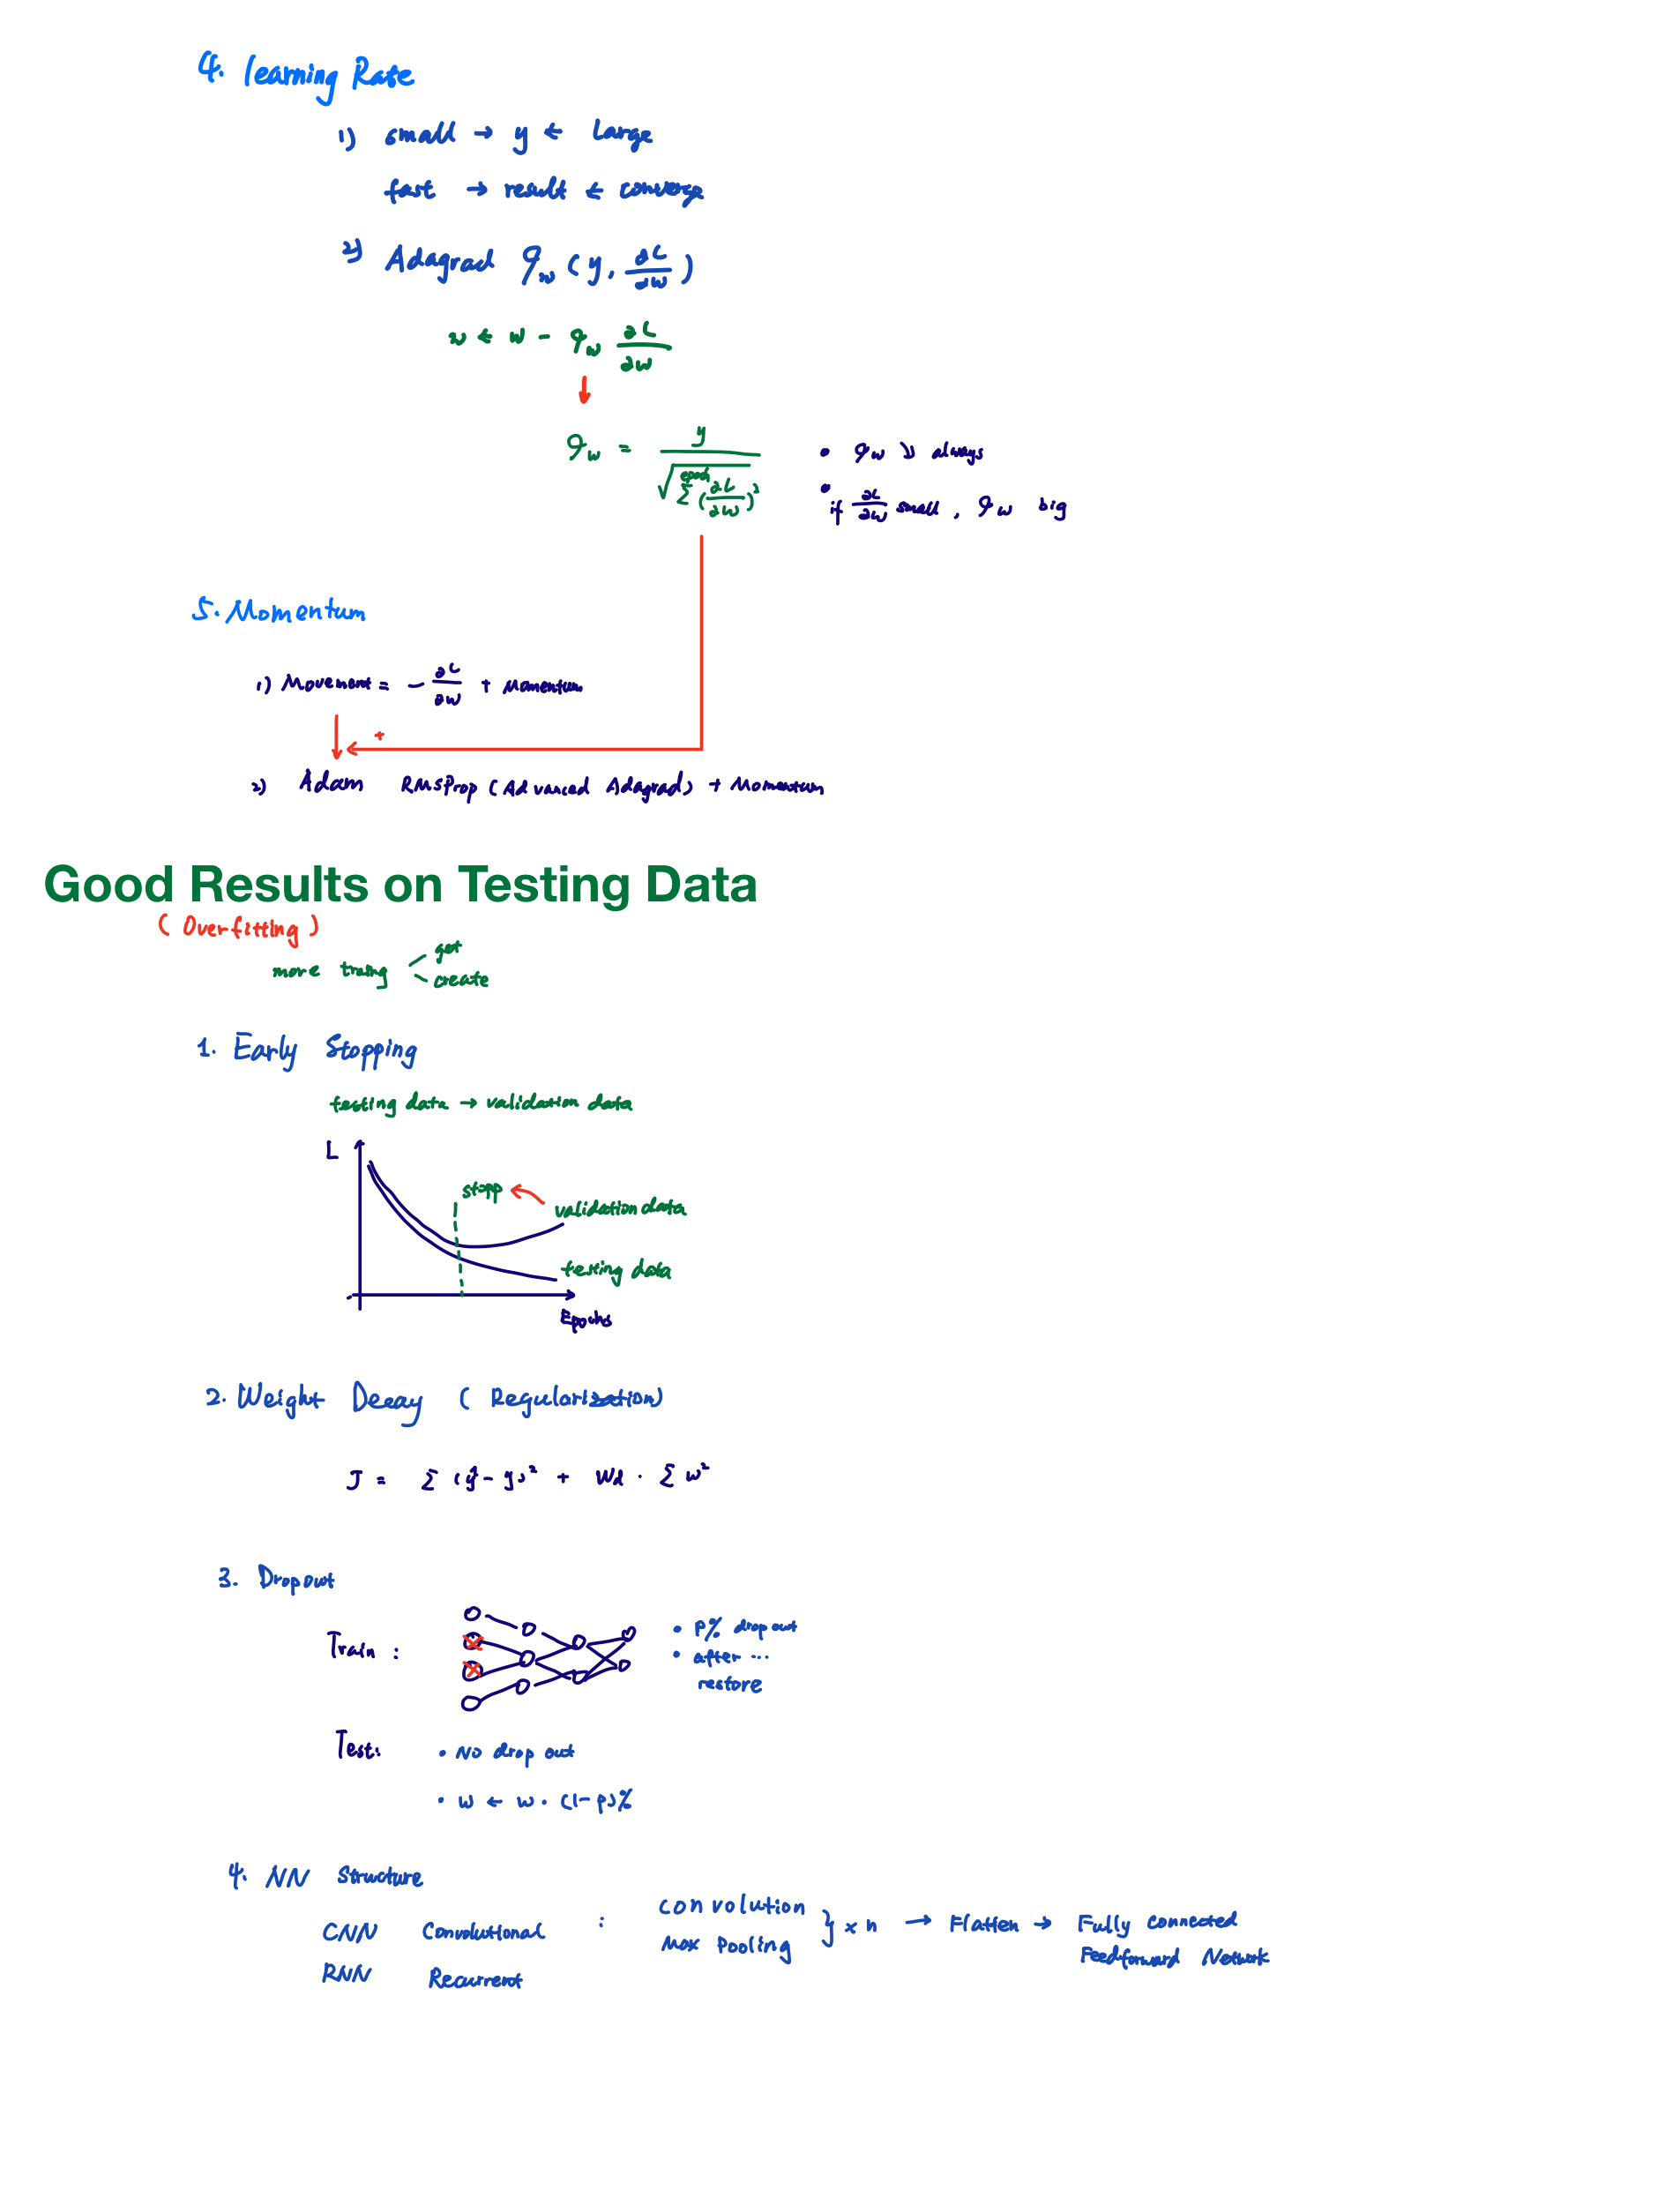 4. learning Rate
1) small → y ← Large
fast → result ← converge
2) Adagrad φw (y, ∂L/∂w)
w ← w - φw ∂L/∂w
φw = y / √(Σ^epoch (∂L/∂w)²)
• φw ↘ always
• if ∂L/∂w small, φw big
5. Momentum
1) Movement = - ∂L/∂w + Momentum
+
2) Adam RMSProp (Advanced Adagrad) + Momentum
Good Results on Testing Data
(Overfitting)
more traing
get
create
1. Early Stopping
testing data → validation data
L
stopp
validation data
testing data
Epochs
2. Weight Decay (Regularization)
J = Σ (ŷ - y)² + Wd · Σ w²
3. Dropout
Train :
• P% drop out
• after ...
restore
Test:
• No drop out
• w ← w · (1-p)%
4. NN Structure
CNN Convolutional : convolution
Max Pooling } × n → Flatten → Fully connected
Feedforward Network
RNN Recurrent